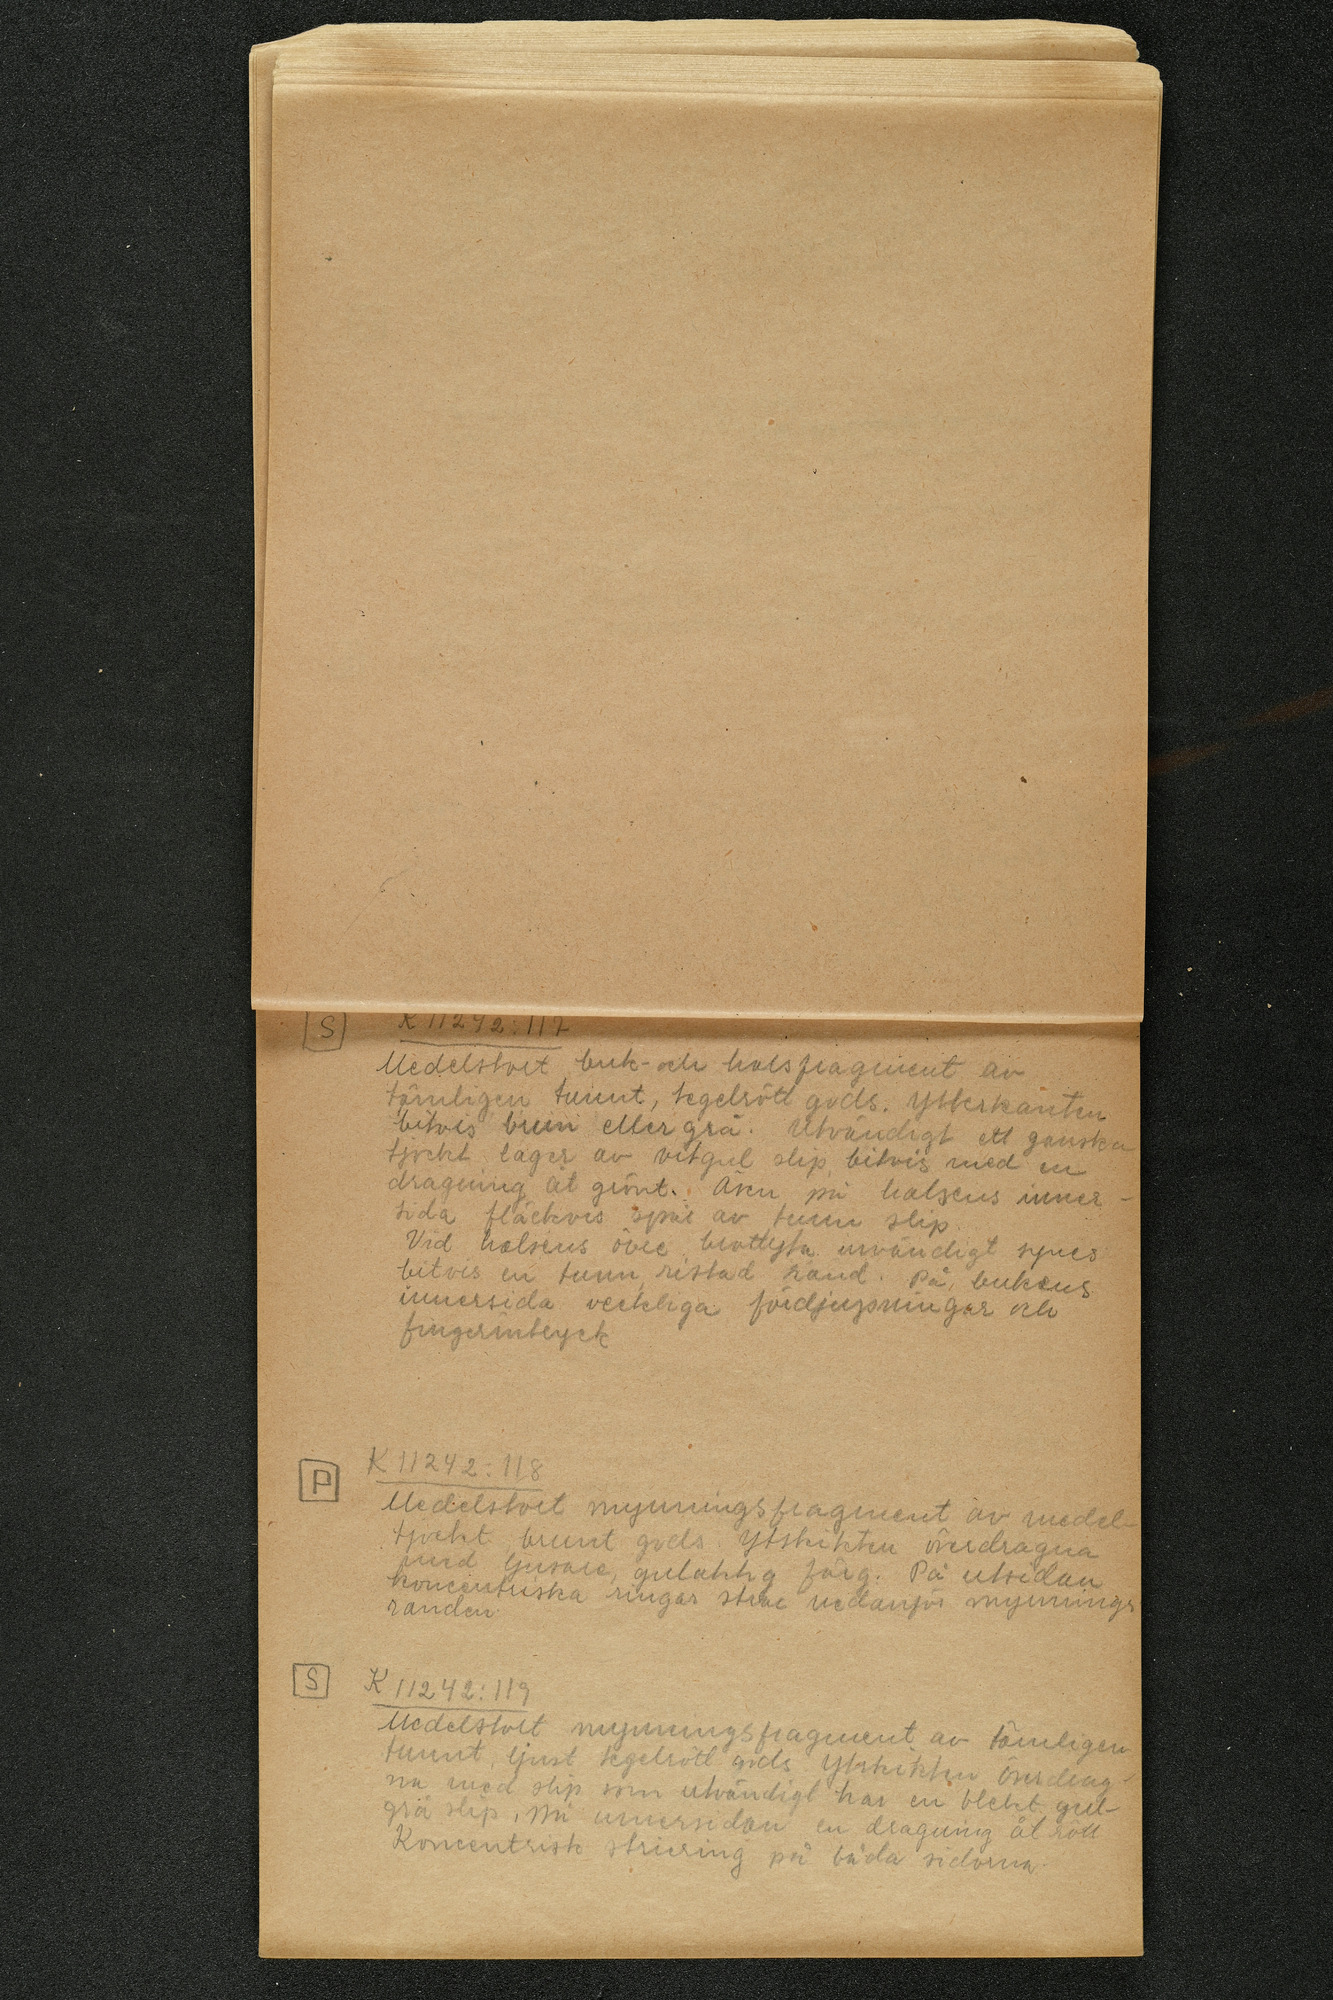 S K 11242:117
Medelstort buk- och halsfragment av
tämligen tunnt, tegelrött gods. Ytterkanten
bitvis brun eller grå. Utvändigt ett ganska
tjockt lager av vitgul slip, bitvis med en
dragning åt grönt. Även på halsens inner-
sida fläckvis spår av tunn slip.
Vid halsens övre brottyta utvändigt synes
bitvis en tunn, ristad rand. På bukens
innersida veckliga fördjupningar och
fingerintryck
P K 11242:118
Medelstort mynningsfragment av medel-
tjockt brunt gods. Ytskikten överdragna
med ljusare, gulaktig färg. På utsidan
koncentriska ringar strax nedanför mynnings
randen.
S K 11242:119
Medelstort mynningsfragment av tämligen
tunnt, ljust tegelrött gods. Ytskikten överdrag-
na med slip som utvändigt har en blekt gul-
grå slip, på innersidan en dragning åt rött
Koncentrisk striering på båda sidorna.